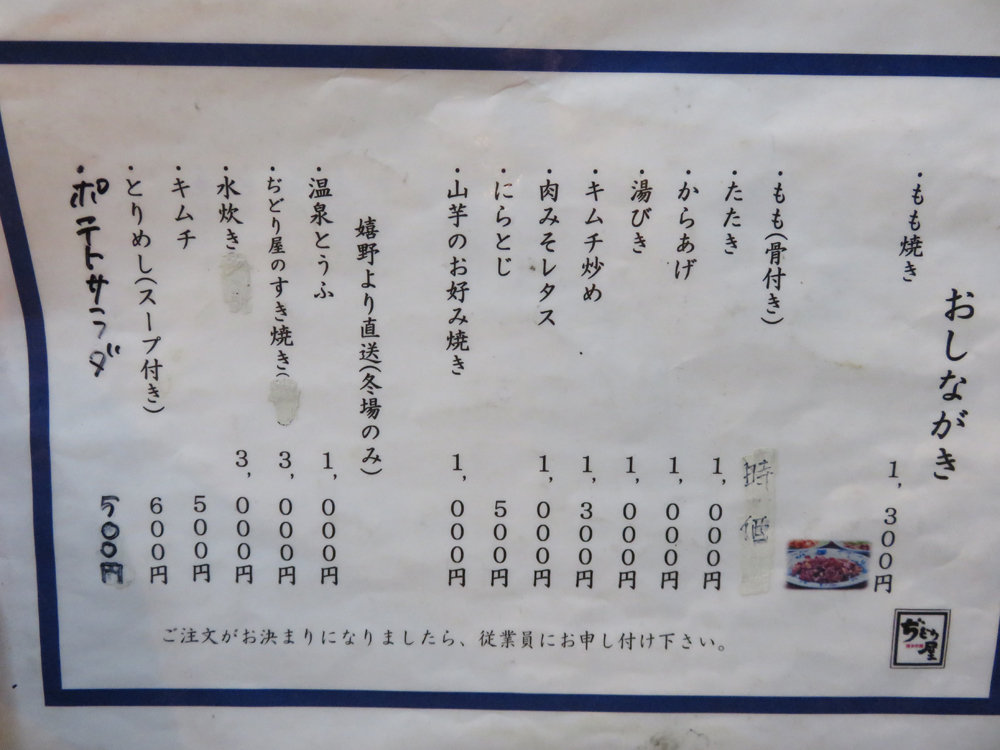 おしながき
・もも焼き 1,300円
・もも(骨付き) 時個
・たたき 1,000円
・からあげ 1,000円
・湯びき 1,000円
・キムチ炒め 1,300円
・肉みそレタス 1,000円
・にらとじ 500円
・山芋のお好み焼き 1,000円
嬉野より直送(冬場のみ)
・温泉とうふ 1,000円
・ぢどり屋のすき焼き( 3,000円
・水炊き 3,000円
・キムチ 500円
・とりめし(スープ付き) 600円
・ポテトサラダ 500円
ご注文がお決まりになりましたら、従業員にお申し付け下さい。
ぢどり屋